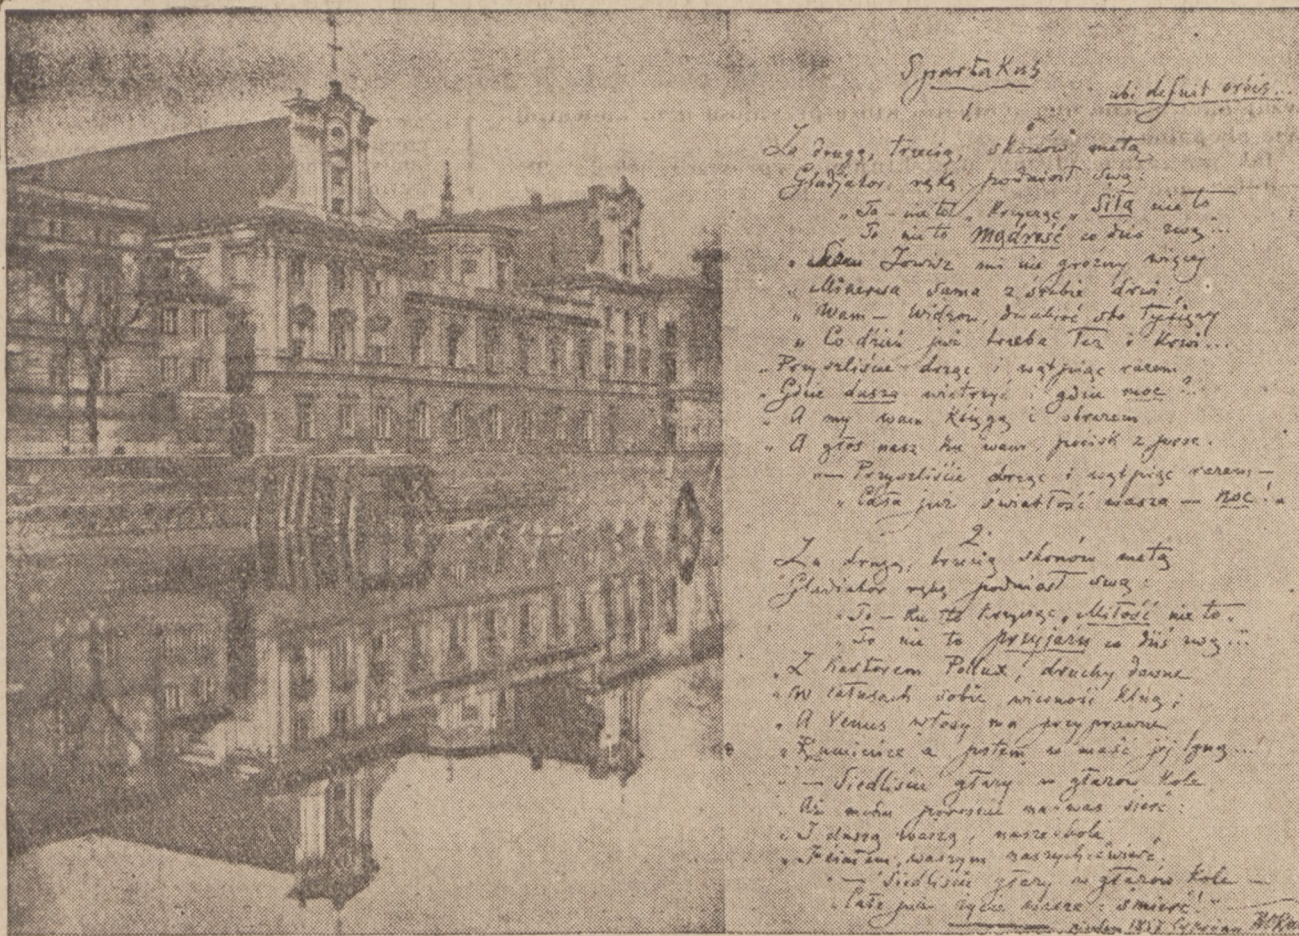 Spartakus
ubi defuit orbis...
1
Za drugą, trzecią, skonów metą
Gladjator rękę podniósł swą:
„To – nie to! „ krzycząc „ Siła nie to
„To nie to Mądrość co dziś zwą...
„ Jowisz mi nie groźny więcej
„Minerwa sama z siebie drwi:
„Wam – widzów, dwakroć sto tysięcy
„Co dzień już trzeba łez i krwi...
„Przyszliście drżąc i wątpiąc razem
„Gdzie dusza wietrzyć i gdzie moc?
„A my wam księgą i obrazem
„A głos nasz ku wam, pocisk z proc.
„— Przyszliście drżąc i wątpiąc razem —
„Cała już światłość wasza — noc!„
2.
Za drugą, trzecią skonów metą
Gladiator rękę podniósł swą:
„To – nie to krzycząc, Miłość nie to.
„To nie to przyjaźń co dziś zwą...
„Z Kastorem Pollux, druchy dawne
„W sobie wieczność klną;
„A Venus włosy ma przyprawne
„Rumieńce a potem w maść jej lgną...
„— Siedliście głazy w głazów kole
„Aż mchu porośnie na was sierć:
„I duszą waszą, nasze bole
„ waszym naszych ćwierć.
„— Siedliście głazy w głazów kole —
„Całe już życie wasze: śmierć!”
1857 Cyprian